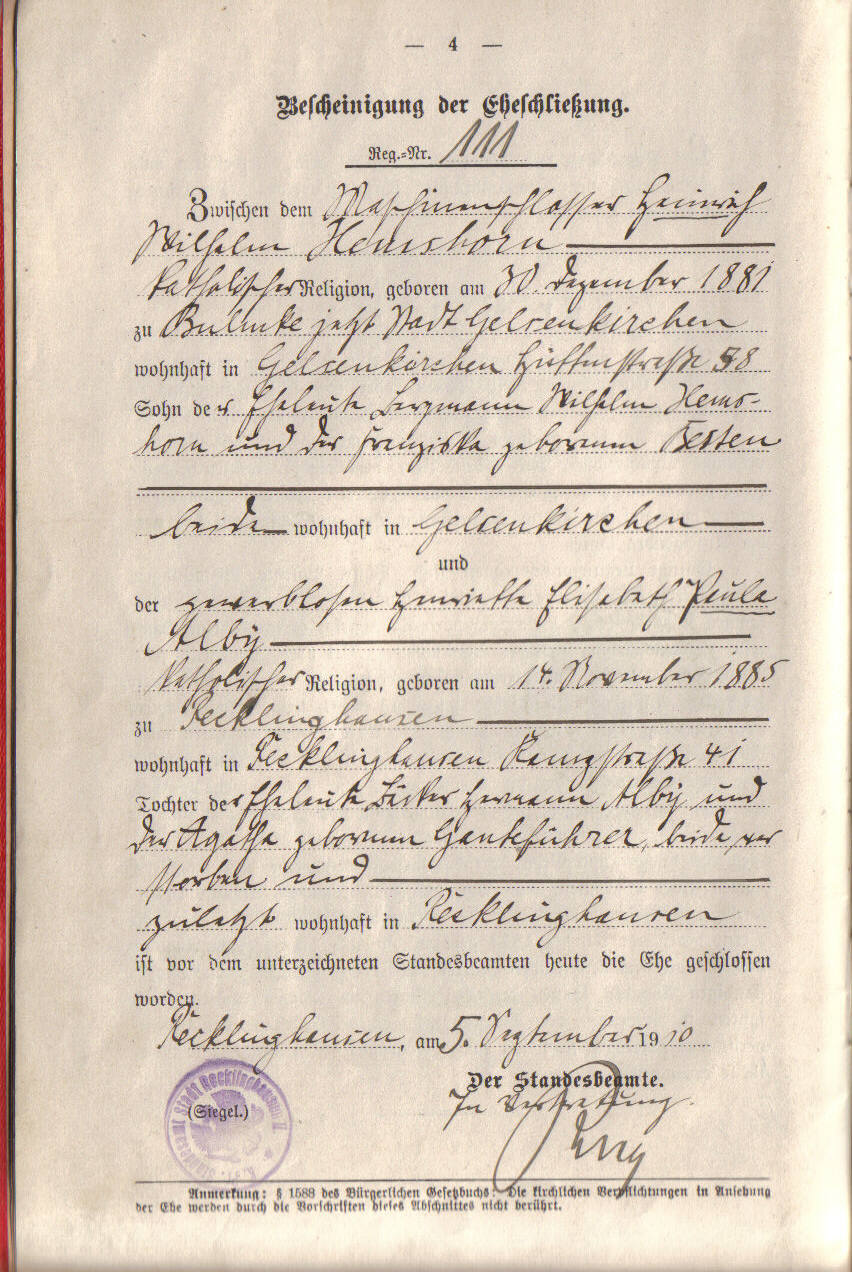 — 4 —
Bescheinigung der Eheschließung.
Reg.-Nr. 111
Zwischen dem Maschinenschlosser Heinrich
Wilhelm Hemshorn
katholischer Religion, geboren am 30 Dezember 1881
zu Bulmke jetzt Stadt Gelsenkirchen
wohnhaft in Gelsenkirchen Hüttenstraße 58
Sohn der Eheleute Bergmann Wilhelm Hems-
horn und der Franziska geborenen Besten
beide wohnhaft in Gelsenkirchen
und
der gewerblosen Henriette Elisabeth Paula
Alby
katholischer Religion, geboren am 14. November 1885
zu Recklinghausen
wohnhaft in Recklinghausen Kampstraße 41
Tochter der Eheleute Bäcker Hermann Alby und
der Agatha geborenen Ganteführer, beide ver
storben und
zuletzt wohnhaft in Recklinghausen
ist vor dem unterzeichneten Standesbeamten heute die Ehe geschlossen
worden.
Recklinghausen, am 5. September 1910
Der Standesbeamte.
In Vertretung.
(Siegel.)
Standesamt Stadt Recklinghausen II
Anmerkung: § 1588 des Bürgerlichen Gesetzbuchs: Die kirchlichen Verpflichtungen in Ansehung
der Ehe werden durch die Vorschriften dieses Abschnittes nicht berührt.